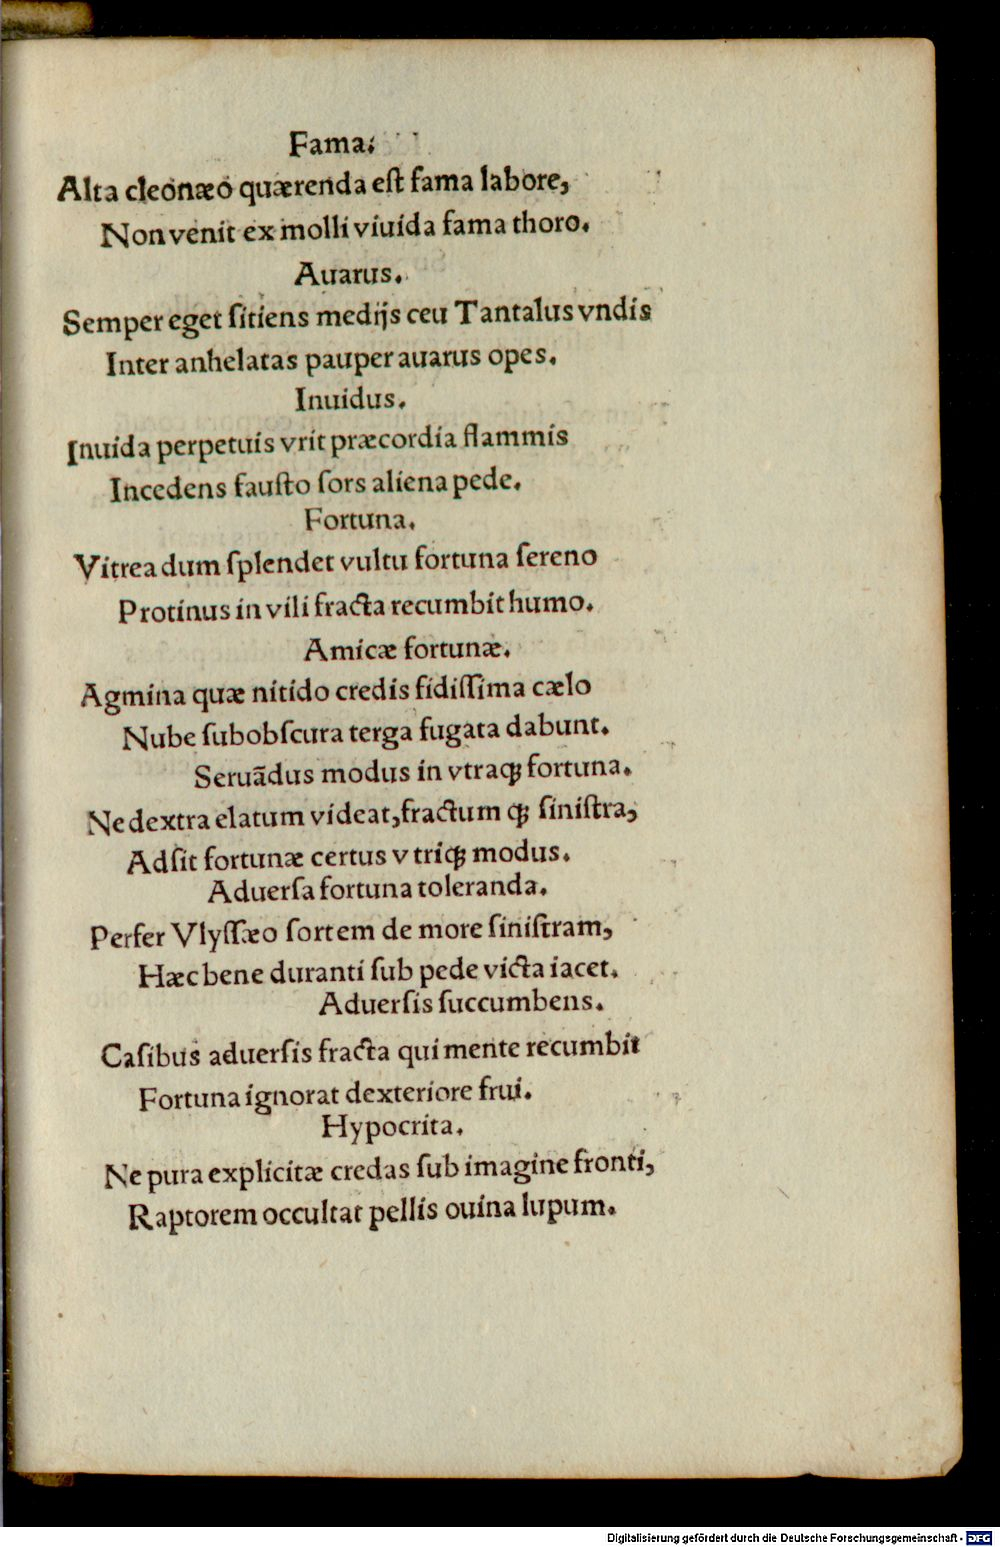 Fama.
Alta cleonæo quærenda eſt fama labore,
Non venit ex molli viuida fama thoro.
Auarus.
Semper eget ſitiens medijs ceu Tantalus vndis
Inter anhelatas pauper auarus opes.
Inuidus.
Inuida perpetuis vrit præcordia flammis
Incedens fauſto ſors aliena pede.
Fortuna.
Vitrea dum ſplendet vultu fortuna ſereno
Protinus in vili fracta recumbit humo.
Amicæ fortunæ.
Agmina quæ nitido credis fidiſſima cælo
Nube ſubobſcura terga fugata dabunt.
Seruãdus modus in vtraqꝫ fortuna.
Ne dextra elatum videat, fractum qꝫ ſiniſtra,
Adſit fortunæ certus v triqꝫ modus.
Aduerſa fortuna toleranda.
Perfer Vlyſſæo ſortem de more ſiniſtram,
Hæc bene duranti ſub pede victa iacet.
Aduerſis ſuccumbens.
Caſibus aduerſis fracta qui mente recumbit
Fortuna ignorat dexteriore frui.
Hypocrita.
Ne pura explicitæ credas ſub imagine fronti,
Raptorem occultat pellis ouina lupum.
Digitalisierung gefördert durch die Deutsche Forschungsgemeinschaft - DFG